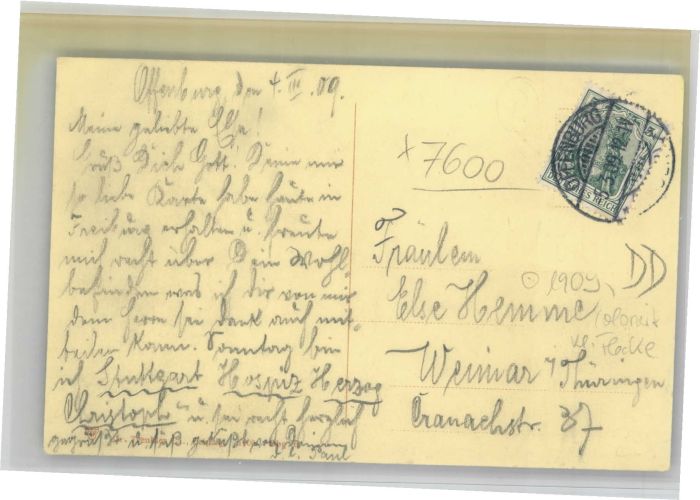 Offenburg, den 4. III. 09.
Meine geliebte Else!
Grüß Dich Gott! Deine mir
so liebe Karte habe heute in
Freiburg erhalten u. freute
mich recht über Dein Wohl-
befinden was ich Dir von mir
dem Herrn sei Dank auch mit-
teilen kann. Sonntag bin
ich Stuttgart Hospiz Herzog
Christoph" u. sei recht herzlich
gegrüßt u. süß geküßt von Deinem
Paul
OFFENBURG
DEUTSCHES REICH
x 7600
Fräulein
Else Hemme
Weimar / Thüringen
Cranachstr. 37
1909,
DD
kl. Flecke